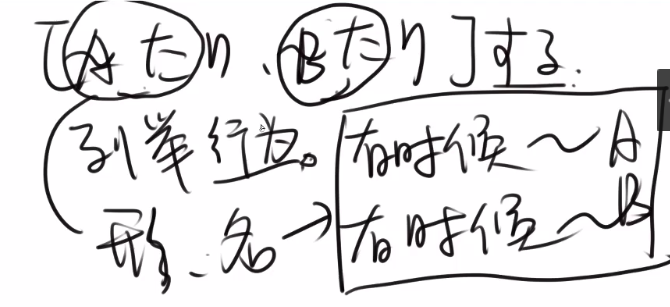 [Aたり、Bたり]する.
列举行为。
有时候～A
形、名→有时候～B